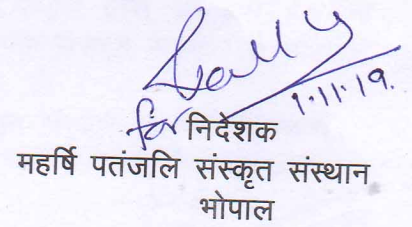 1.11.19.
निदेशक
महर्षि पतंजलि संस्कृत संस्थान
भोपाल